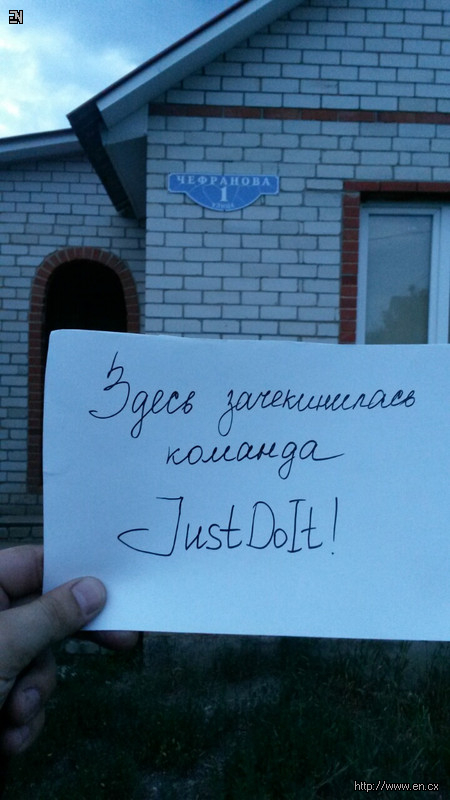 EN
ЧЕФРАНОВА
1
улица
Здесь зачекинилась
команда
JustDoIt!
http://www.en.cx